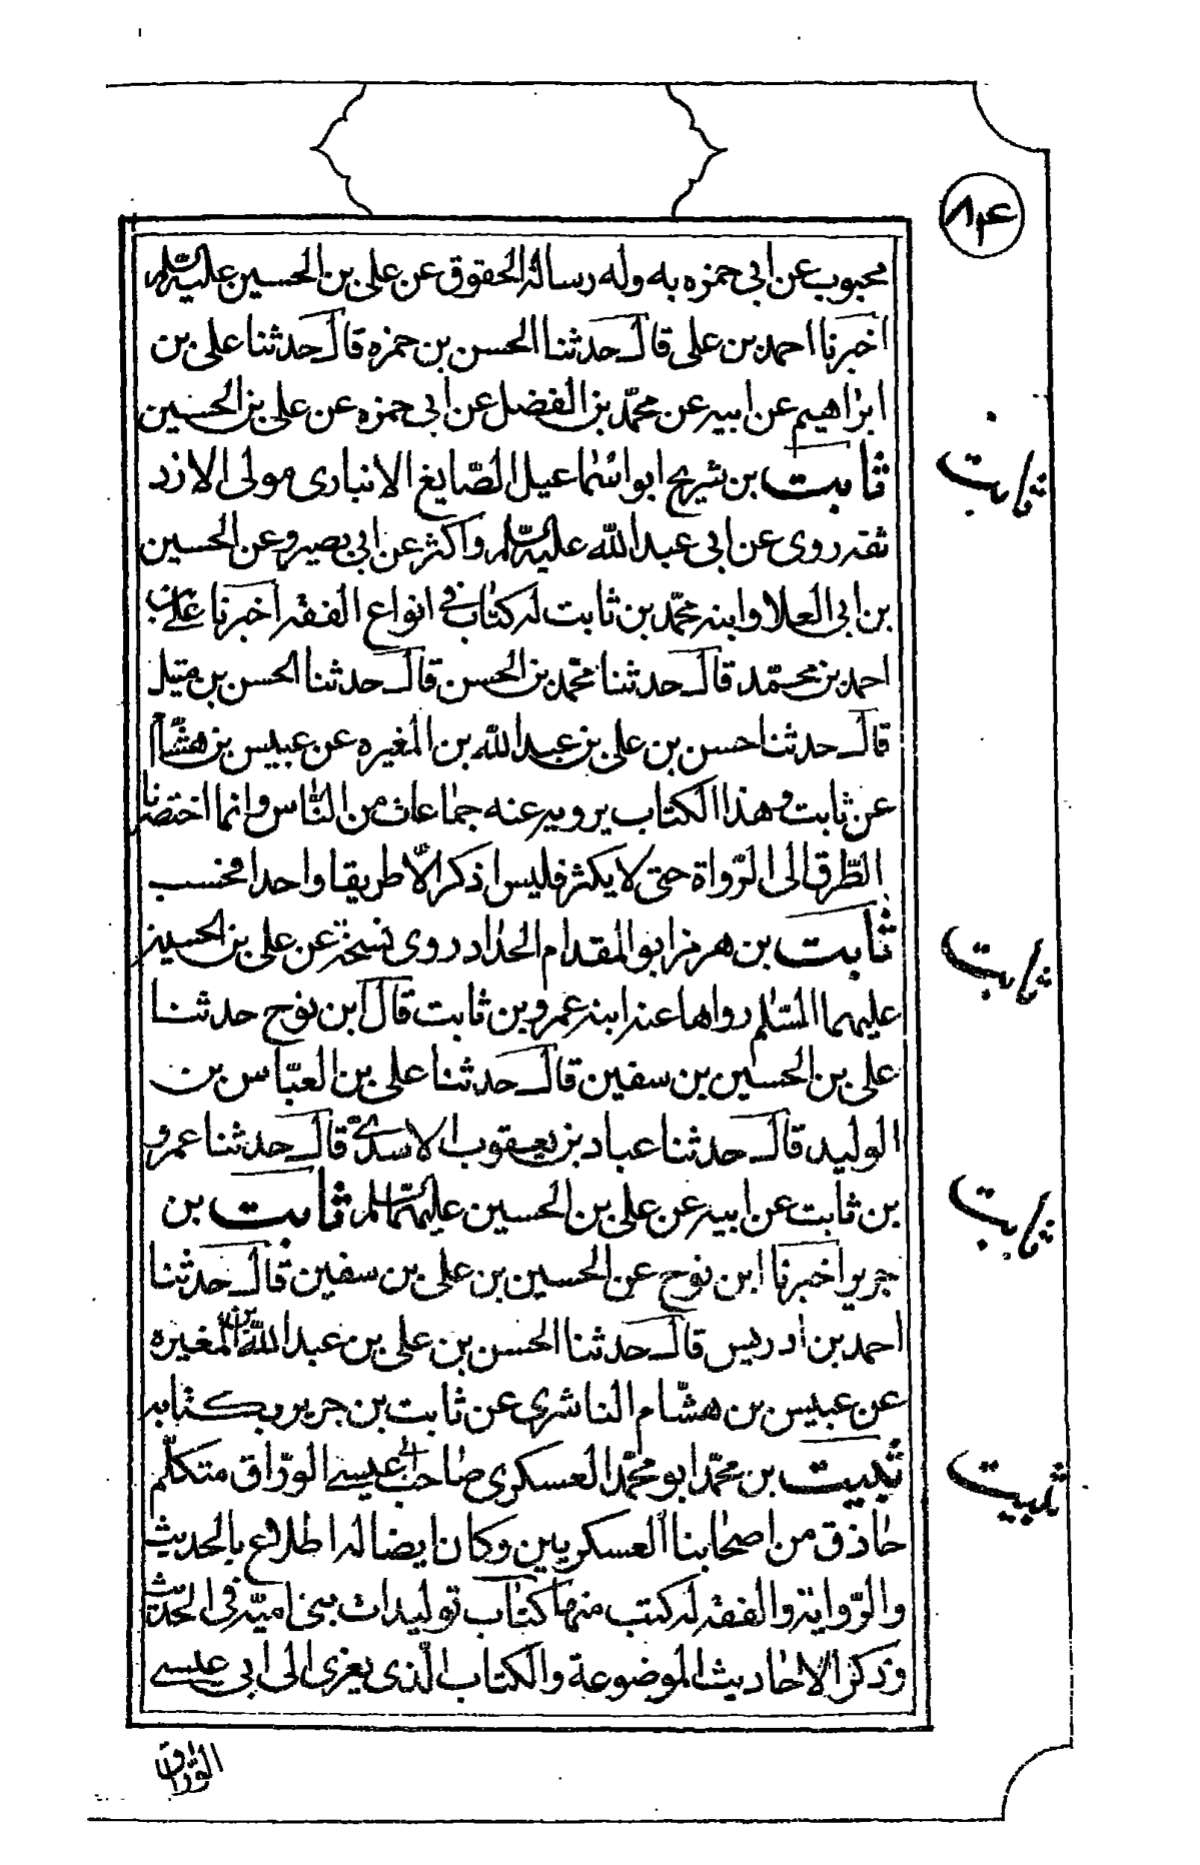 ۸۴
محبوب عن ابی حمزه به وله رسالة الحقوق عن علی بن الحسین علیه السّلم
اخبرنا احمد بن علی قال حدثنا الحسن بن حمزه قال حدثنا علی بن
ابراهیم عن ابیه عن محمّد بن الفضل عن ابی حمزه عن علی بن الحسین
ثابت بن شریح ابو اسماعیل الصّایغ الانباری مولی الازد
ثابت
ثقه روی عن ابی عبد الله علیه السّلم واکثر عن ابی بصیر وعن الحسین
بن ابی العلا وابنه محمّد بن ثابت له کتاب فی انواع الفقه اخبرنا علی بن
احمد بن محمّد قال حدثنا محمّد بن الحسن قال حدثنا الحسن بن متیل
قال حدثنا حسن بن علی بن عبد الله بن المغیره عن عبیس بن هشام
عن ثابت وهذا الکتاب یرویه عنه جماعات من النّاس وانما اختصرنا
الطّرق الی الرّواة حتی لا یکثر فلیس اذکر الّا طریقا واحدا فحسب
ثابت بن هرمز ابو المقدام الحدّاد روی نسخة عن علی بن الحسین
ثابت
علیهما السّلم رواها عنه ابنه عمرو بن ثابت قال ابن نوح حدثنا
علی بن الحسین بن سفین قال حدثنا علی بن العبّاس بن
الولید قال حدثنا عباد بن یعقوب الاسدی قال حدثنا عمرو
بن ثابت عن ابیه عن علی بن الحسین علیهما السّلم ثابت بن
ثابت
جریر اخبرنا ابن نوح عن الحسین بن علی بن سفین قال حدثنا
احمد بن ادریس قال حدثنا الحسن بن علی بن عبد الله بن المغیره
عن عبیس بن هشّام الناشری عن ثابت بن جریر بکتابه
ثبیت بن محمّد ابو محمّد العسکری صاحب ابی عیسی الورّاق متکلّم
ثبیت
حاذق من اصحابنا العسکریین وکان ایضا له اطلاع بالحدیث
والرّوایة والفقه له کتب منها کتاب تولیدات بنی امیّه فی الحدیث
وذکر الاحادیث الموضوعة والکتاب الّذی یعزی الی ابی عیسی
الورّاق